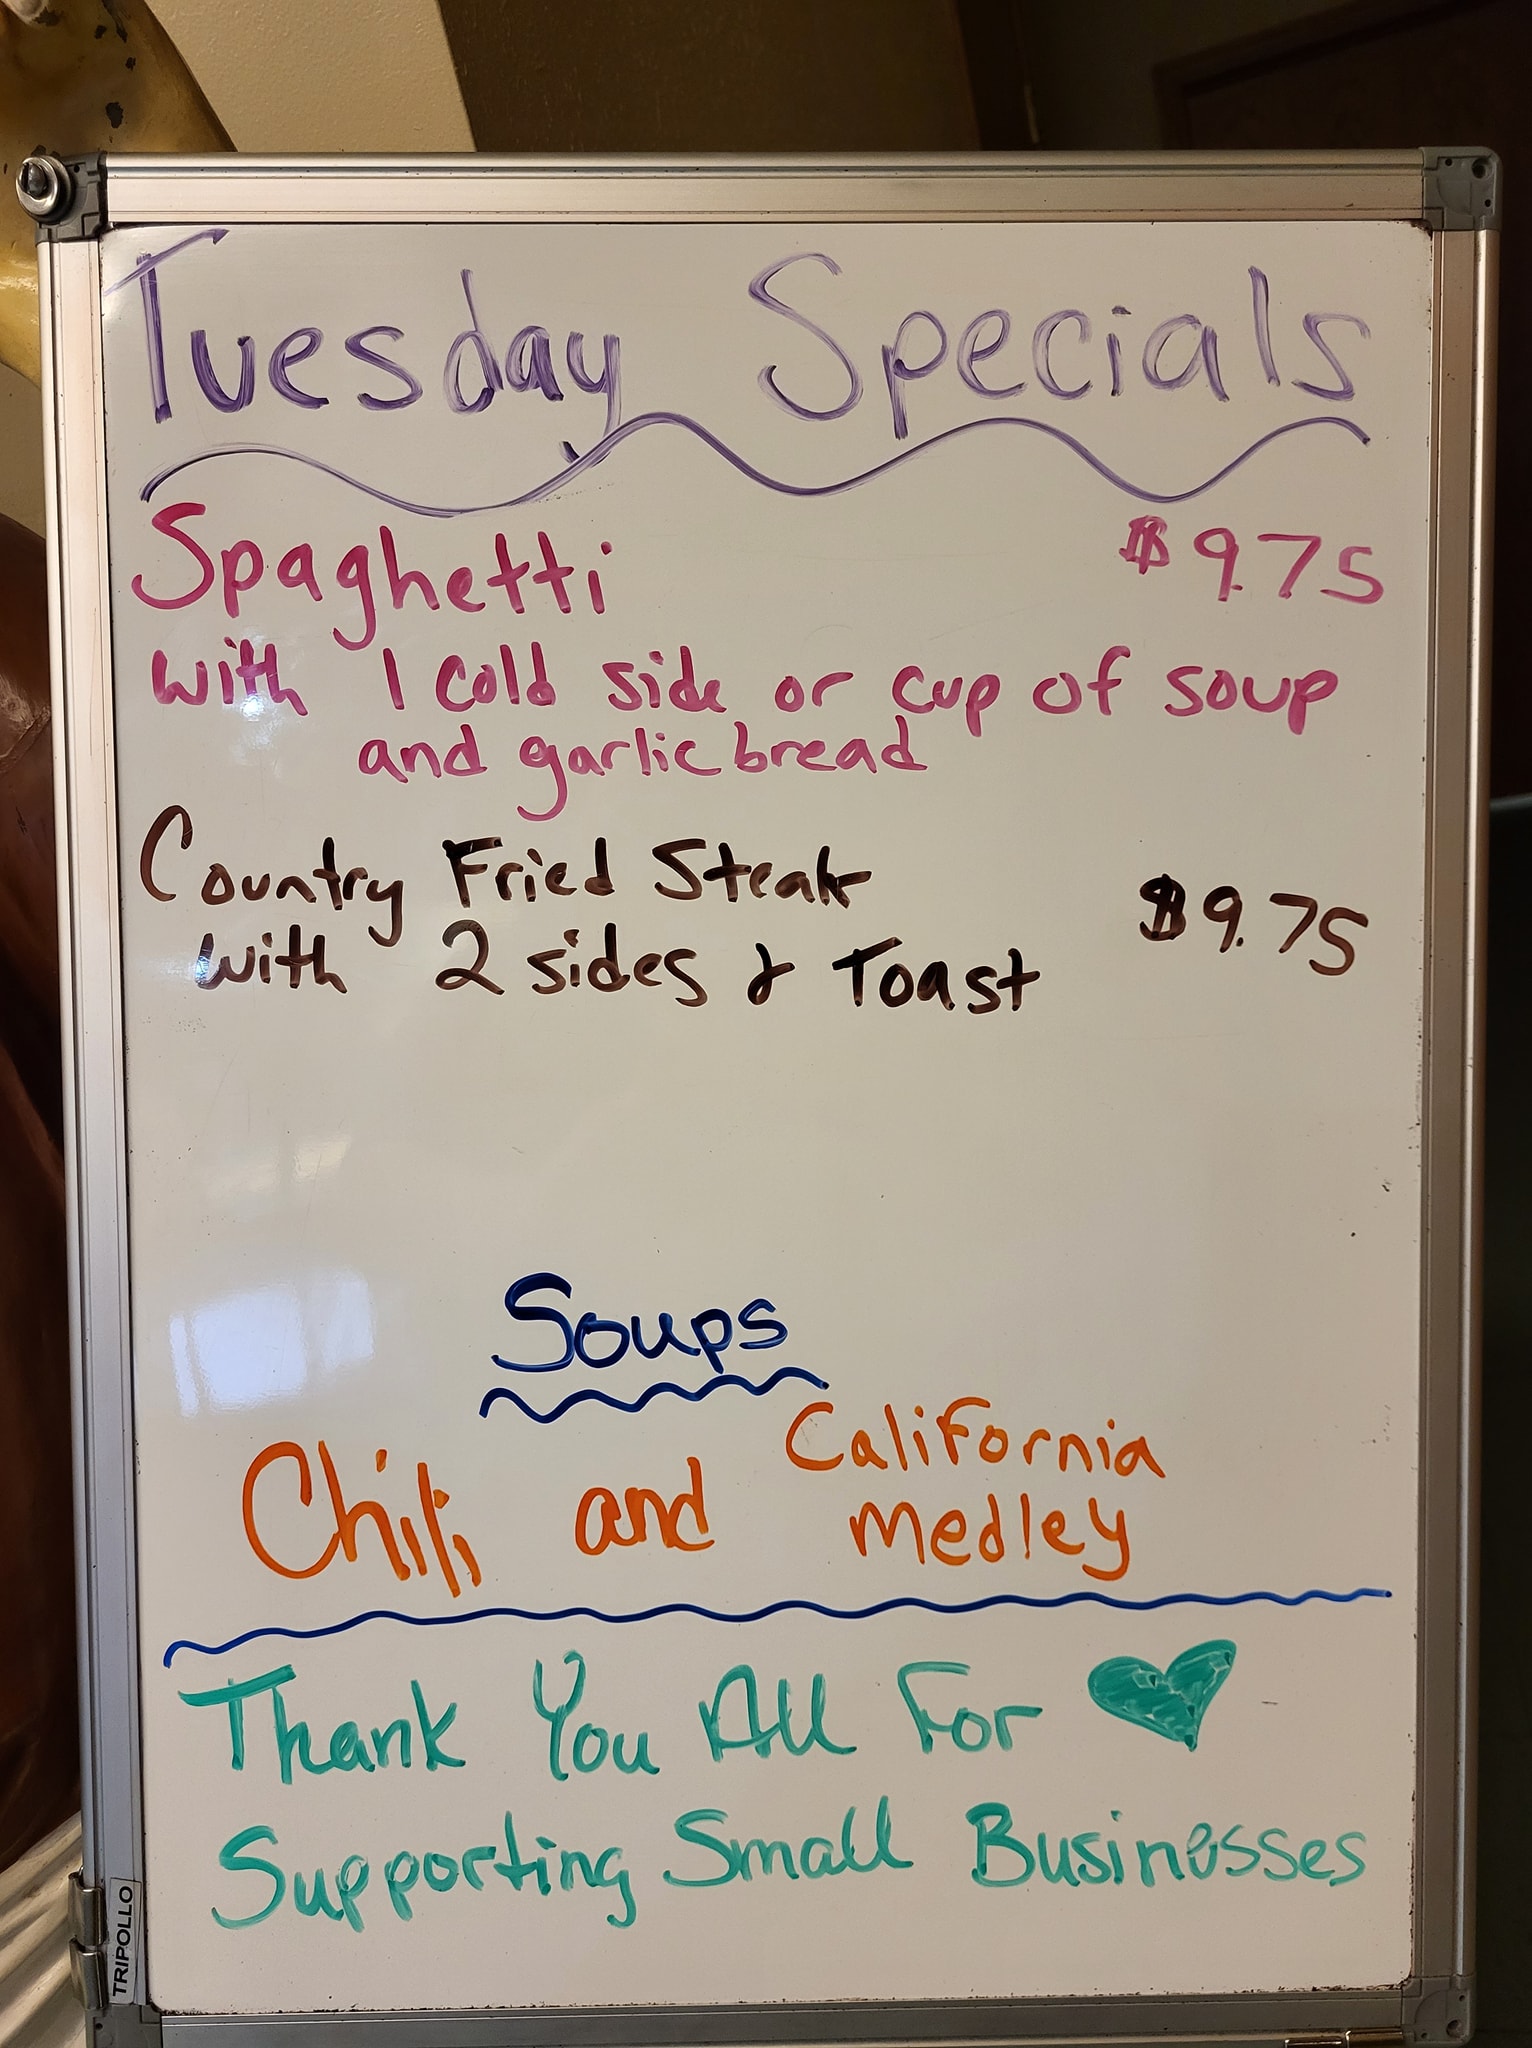 Tuesday Specials
Spaghetti $9.75
with 1 cold side or cup of soup
and garlic bread
Country Fried Steak $9.75
with 2 sides & Toast
Soups
Chili and California
Medley
Thank You All For
Supporting Small Businesses
TRIPOLLO